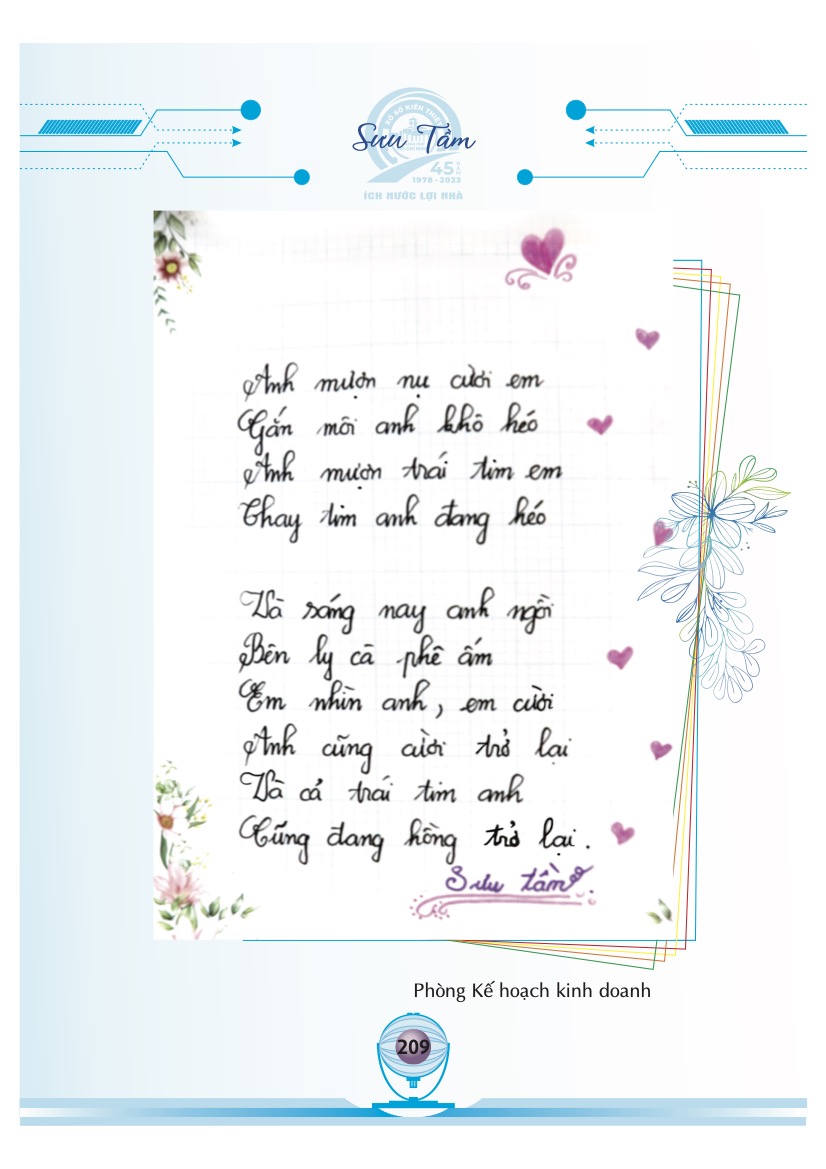 Sưu Tầm
XỔ SỐ KIẾN THIẾT
45 NĂM
1978 - 2023
ÍCH NƯỚC LỢI NHÀ
Anh mượn nụ cười em
Gắn môi anh khô héo
Anh mượn trái tim em
Thay tim anh đang héo
Và sáng nay anh ngồi
Bên ly cà phê ấm
Em nhìn anh, em cười
Anh cũng cười trở lại
Và cả trái tim anh
Cũng đang hồng trở lại.
Sưu tầm.
Phòng Kế hoạch kinh doanh
209